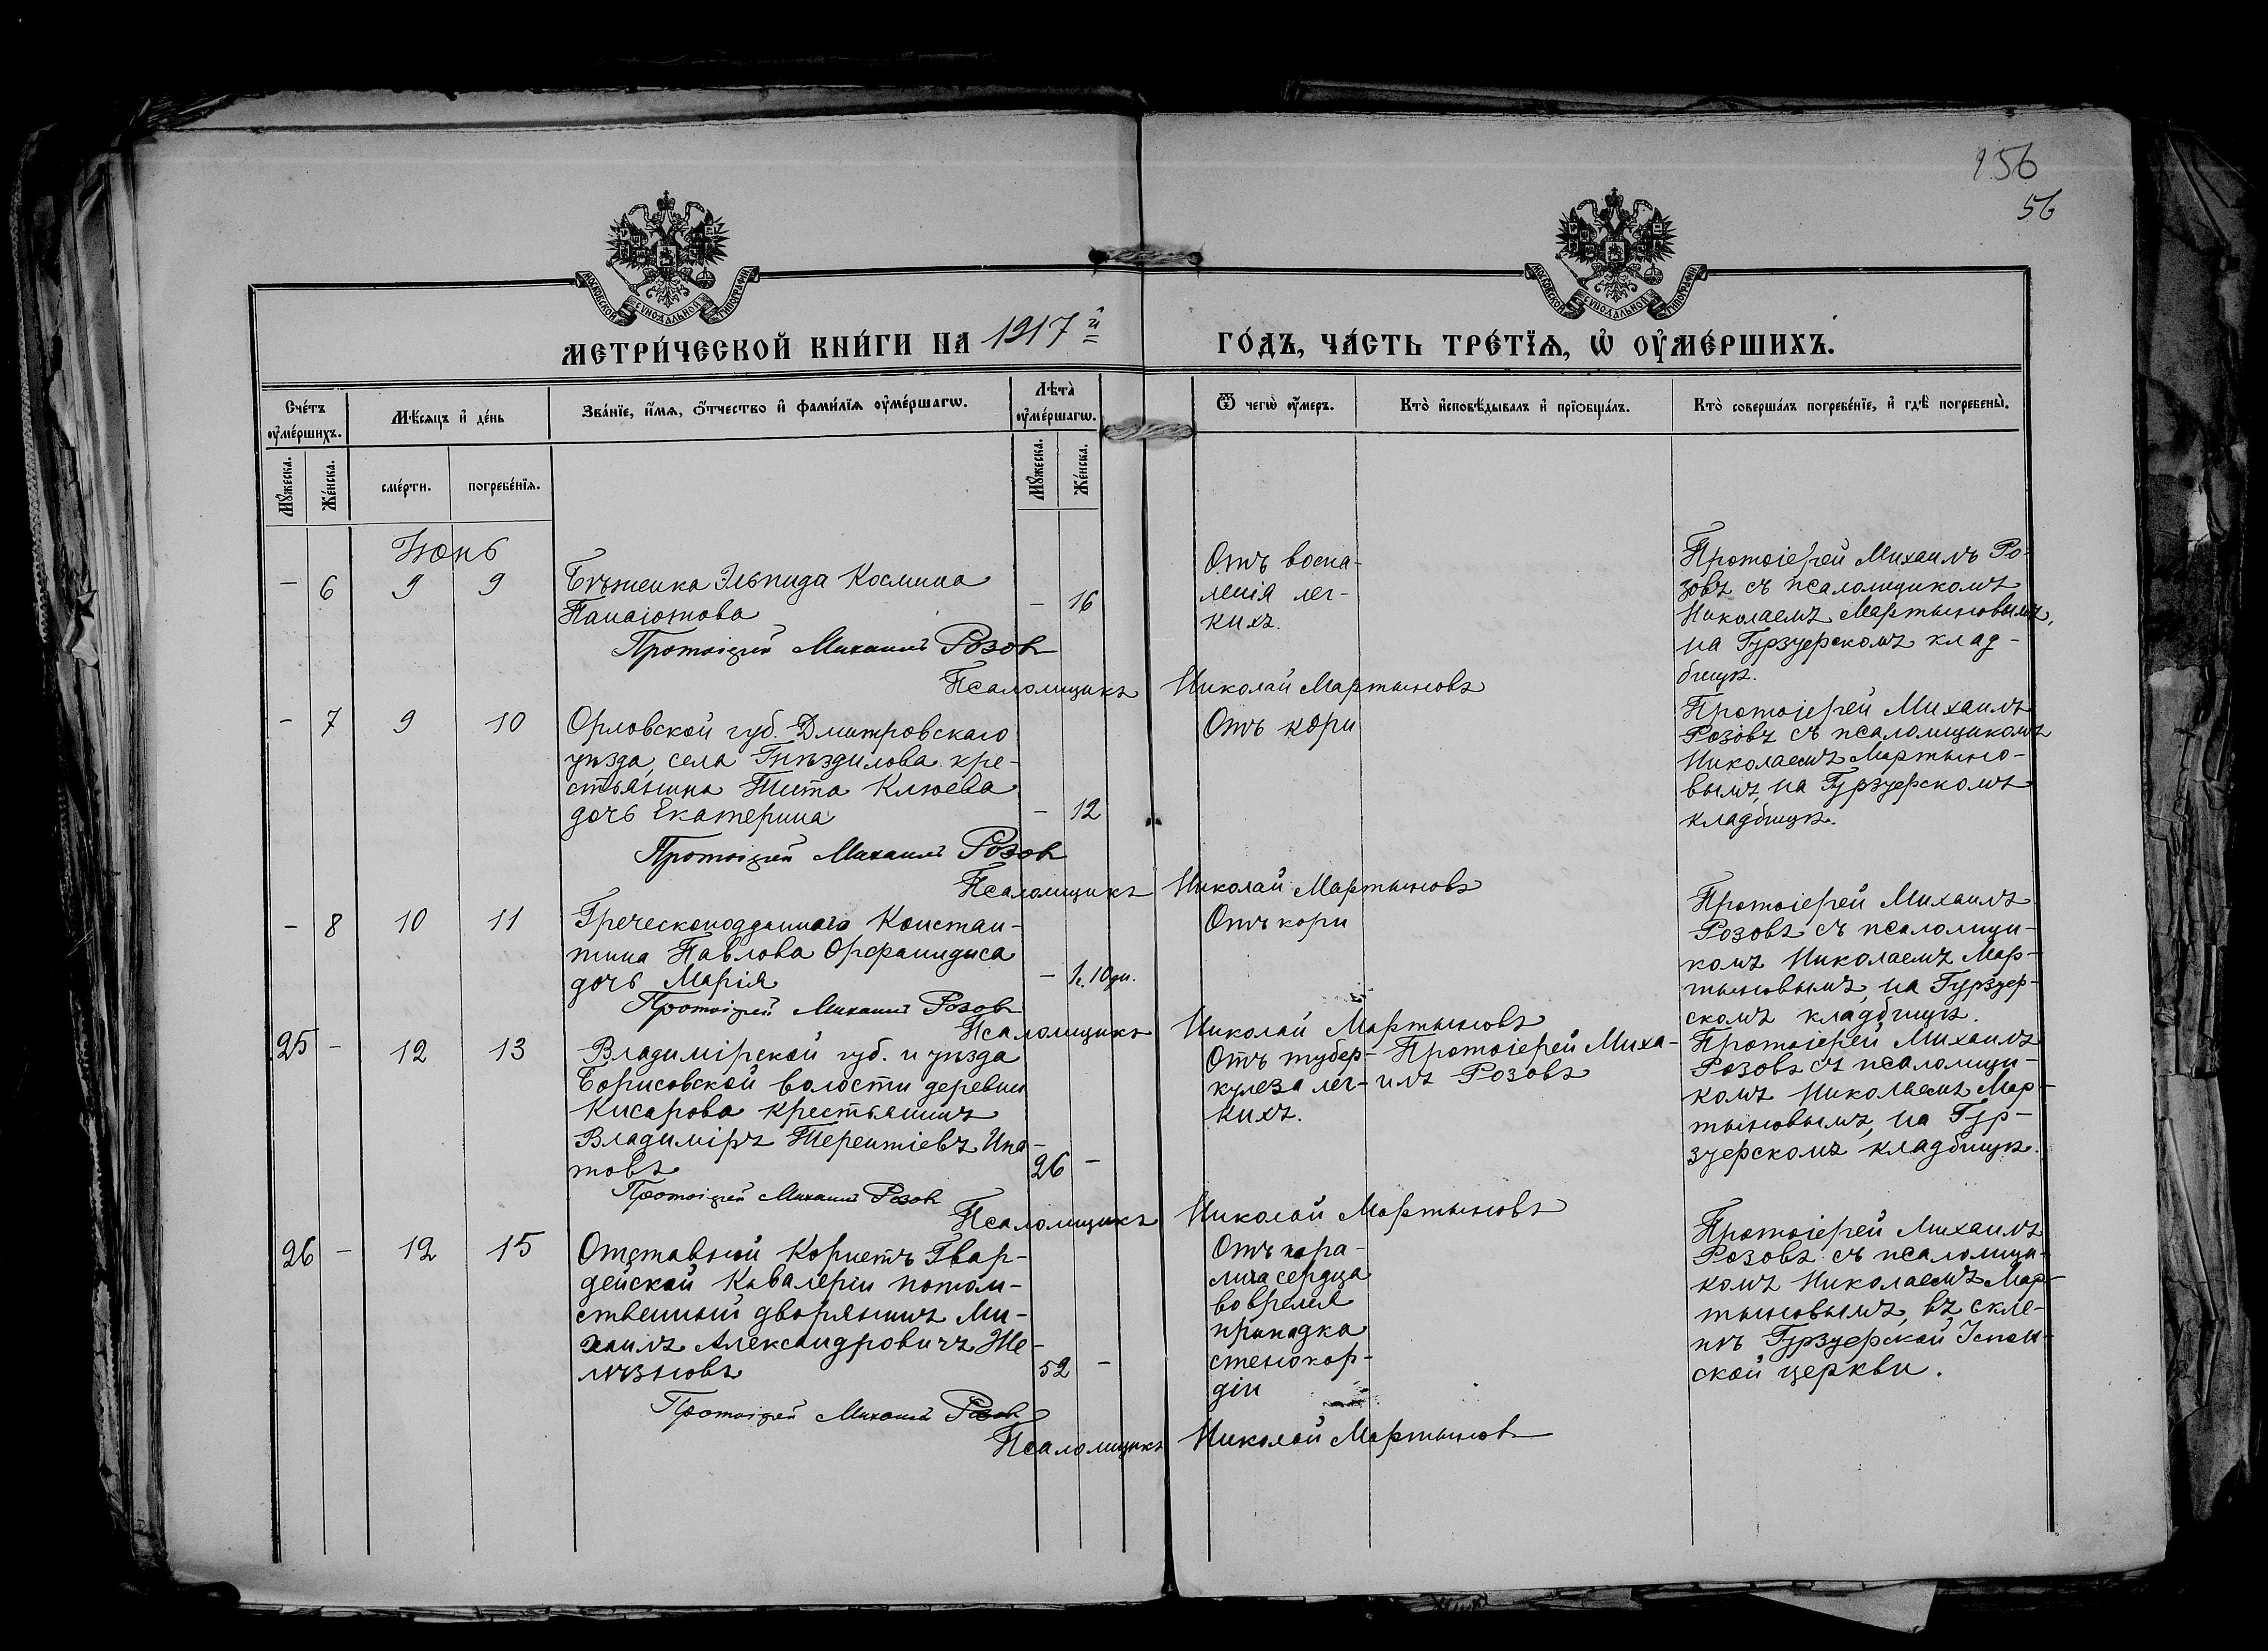 156
56
МОСКОВСКОЙ СѴНОДАЛЬНОЙ ТИПОГРАФІИ
МОСКОВСКОЙ СѴНОДАЛЬНОЙ ТИПОГРАФІИ
МЕТРИ́ЧЕСКОЙ КНИ́ГИ НА 1917й
ГО́ДЪ, ЧА́СТЬ ТРЕ́ТЇѦ, Ѡ҆ ОУ҆МЕ́РШИХЪ.
Сче́тъ оу҆ме́ршихъ.
Мѣ́сѧцъ и҆ де́нь
Зва́нїе, и҆́мѧ, ѻ҆́тчество и҆ фами́лїѧ оу҆ме́ршагѡ.
Лѣ́та̀ оу҆ме́ршагѡ.
Ѿ чегѡ̀ оу҆́меръ.
Кто̀ и҆сповѣ́дывалъ и҆ прїѻбща́лъ.
Кто̀ соверша́лъ погребе́нїе, и҆ гдѣ̀ погребены̀.
Мꙋ́жеска.
Же́нска.
сме́рти.
погребе́нїѧ.
Мꙋ́жеска.
Же́нска.
Іюнь
- 6 9 9
Бѣженка Эльпида Космина
Панаіотова
- 16
Протоіерей Михаилъ Розовъ
Псаломщикъ Николай Мартыновъ
Отъ воспа-
ленія лег-
кихъ.
Протоіерей Михаилъ Ро-
зовъ съ псаломщикомъ
Николаемъ Мартыновымъ,
на Гурзуфскомъ клад-
бищѣ.
- 7 9 10
Орловской губ. Дмитровскаго
уѣзда, села Гнѣздилова кре-
стьянина Тита Клюева
дочь Екатерина
- 12
Протоіерей Михаилъ Розовъ
Псаломщикъ Николай Мартыновъ
Отъ кори
Протоіерей Михаилъ
Розовъ съ псаломщикомъ
Николаемъ Мартыно-
вымъ, на Гурзуфскомъ
кладбищѣ.
- 8 10 11
Греческоподданнаго Констан-
тина Павлова Орфанидиса
дочь Марія
- 1г. 10дн.
Протоіерей Михаилъ Розовъ
Псаломщикъ Николай Мартыновъ
Отъ кори
Протоіерей Михаилъ
Розовъ съ псаломщи-
комъ Николаемъ Мар-
тыновымъ, на Гурзуф-
скомъ кладбищѣ.
25 - 12 13
Владимірской губ. и уѣзда
Борисовской волости деревни
Кисарова крестьянинъ
Владиміръ Терентіевъ Ипа-
товъ
26 -
Протоіерей Михаилъ Розовъ
Псаломщикъ Николай Мартыновъ
Отъ тубер-
кулеза лег-
кихъ.
Протоіерей Миха-
илъ Розовъ
Протоіерей Михаилъ
Розовъ съ псаломщи-
комъ Николаемъ Мар-
тыновымъ, на Гур-
зуфскомъ кладбищѣ.
26 - 12 15
Отставной Корнетъ Гвар-
дейской Кавалеріи потом-
ственный дворянинъ Ми-
хаилъ Александровичъ Же-
лѣзновъ
52 -
Протоіерей Михаилъ Розовъ
Псаломщикъ Николай Мартыновъ
Отъ пара-
лича сердца
во время
припадка
стенокар-
діи
Протоіерей Михаилъ
Розовъ съ псаломщи-
комъ Николаемъ Мар-
тыновымъ, въ скле-
пѣ Гурзуфской Успен-
ской церкви.